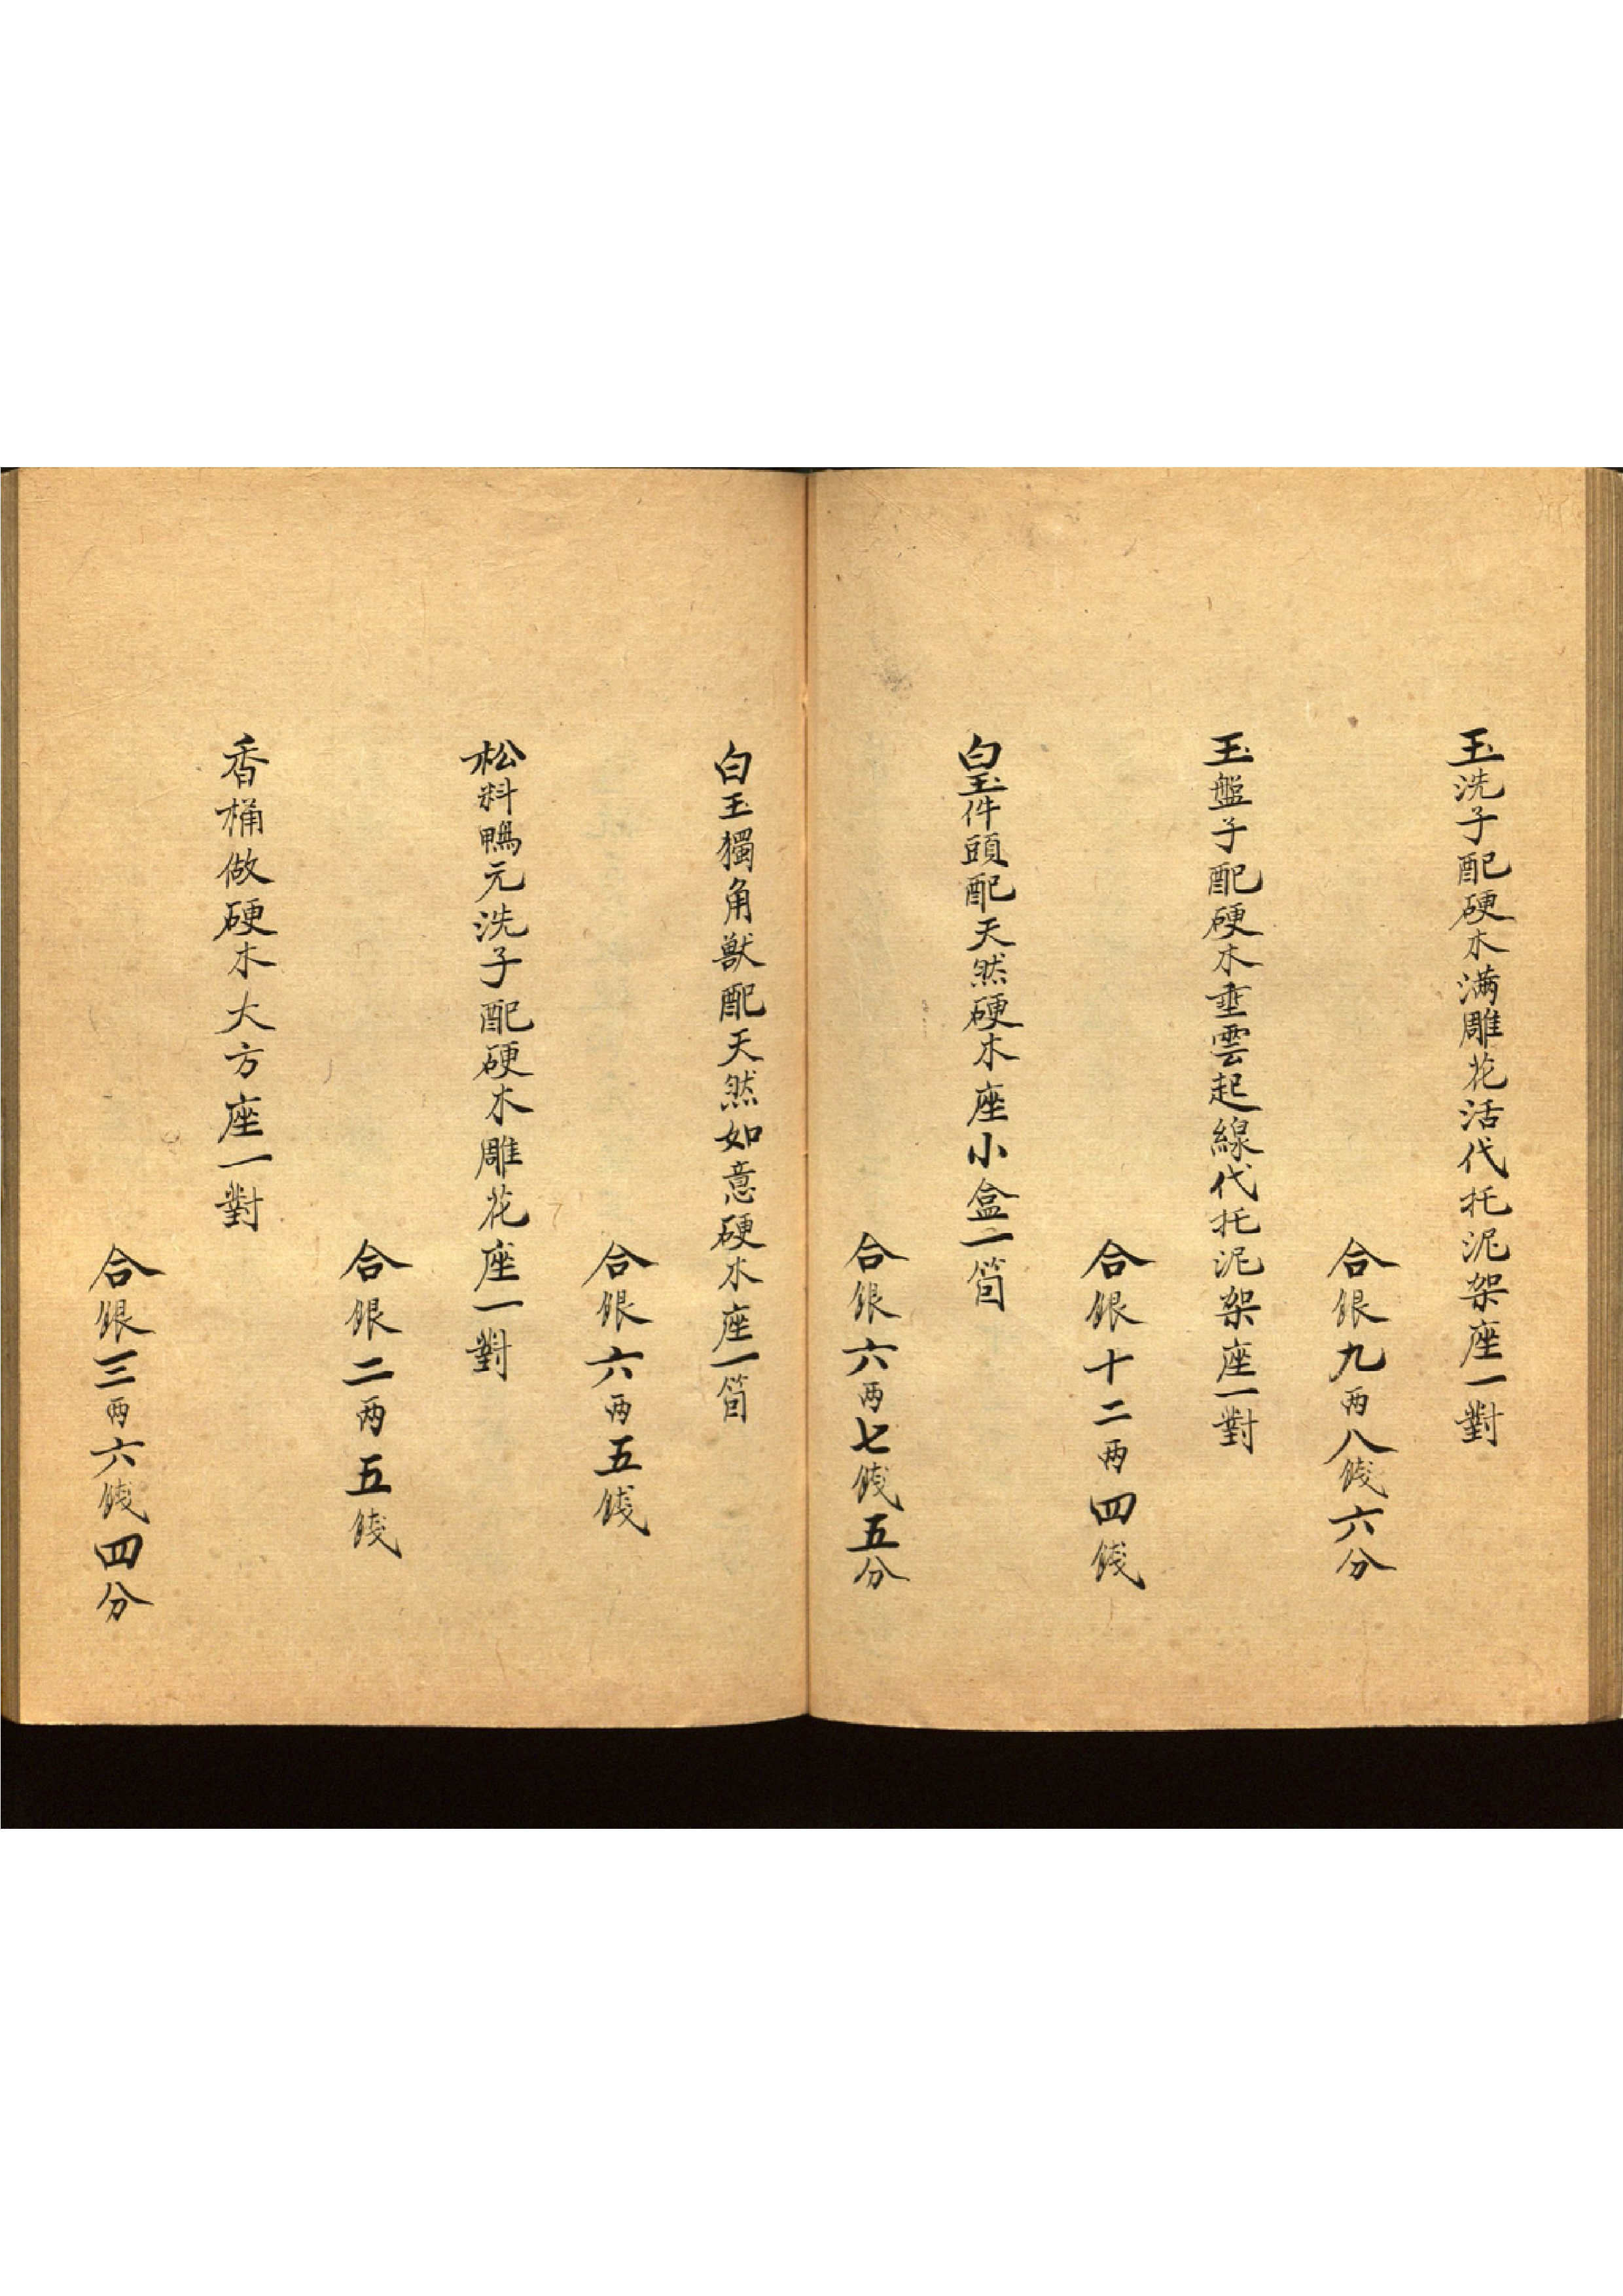 玉洗子配硬木滿雕花活代托泥架座一對
合銀九两八錢六分
玉盤子配硬木垂雲起線代托泥架座一對
合銀十二两四錢
白玉件頭配天然硬木座小盒一箇
合銀六两七錢五分
白玉獨角獸配天然如意硬木座一箇
合銀六两五錢
松料鴨元洗子配硬木雕花座一對
合銀二两五錢
香桶做硬木大方座一對
合銀三两六錢四分